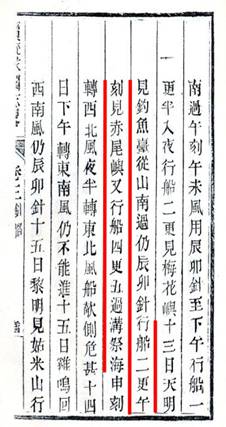 南過午刻午未風用辰卯針至下午行船一
更半入夜行船二更見梅花嶼十三日天明
見釣魚臺從山南過仍辰卯針行船二更午
刻見赤尾嶼又行船四更五過溝祭海申刻
轉西北風夜半轉東北風船欹側危甚十四
日下午轉東南風仍不能進十五日雞鳴回
西南風仍辰卯針十五日黎明見姑米山行